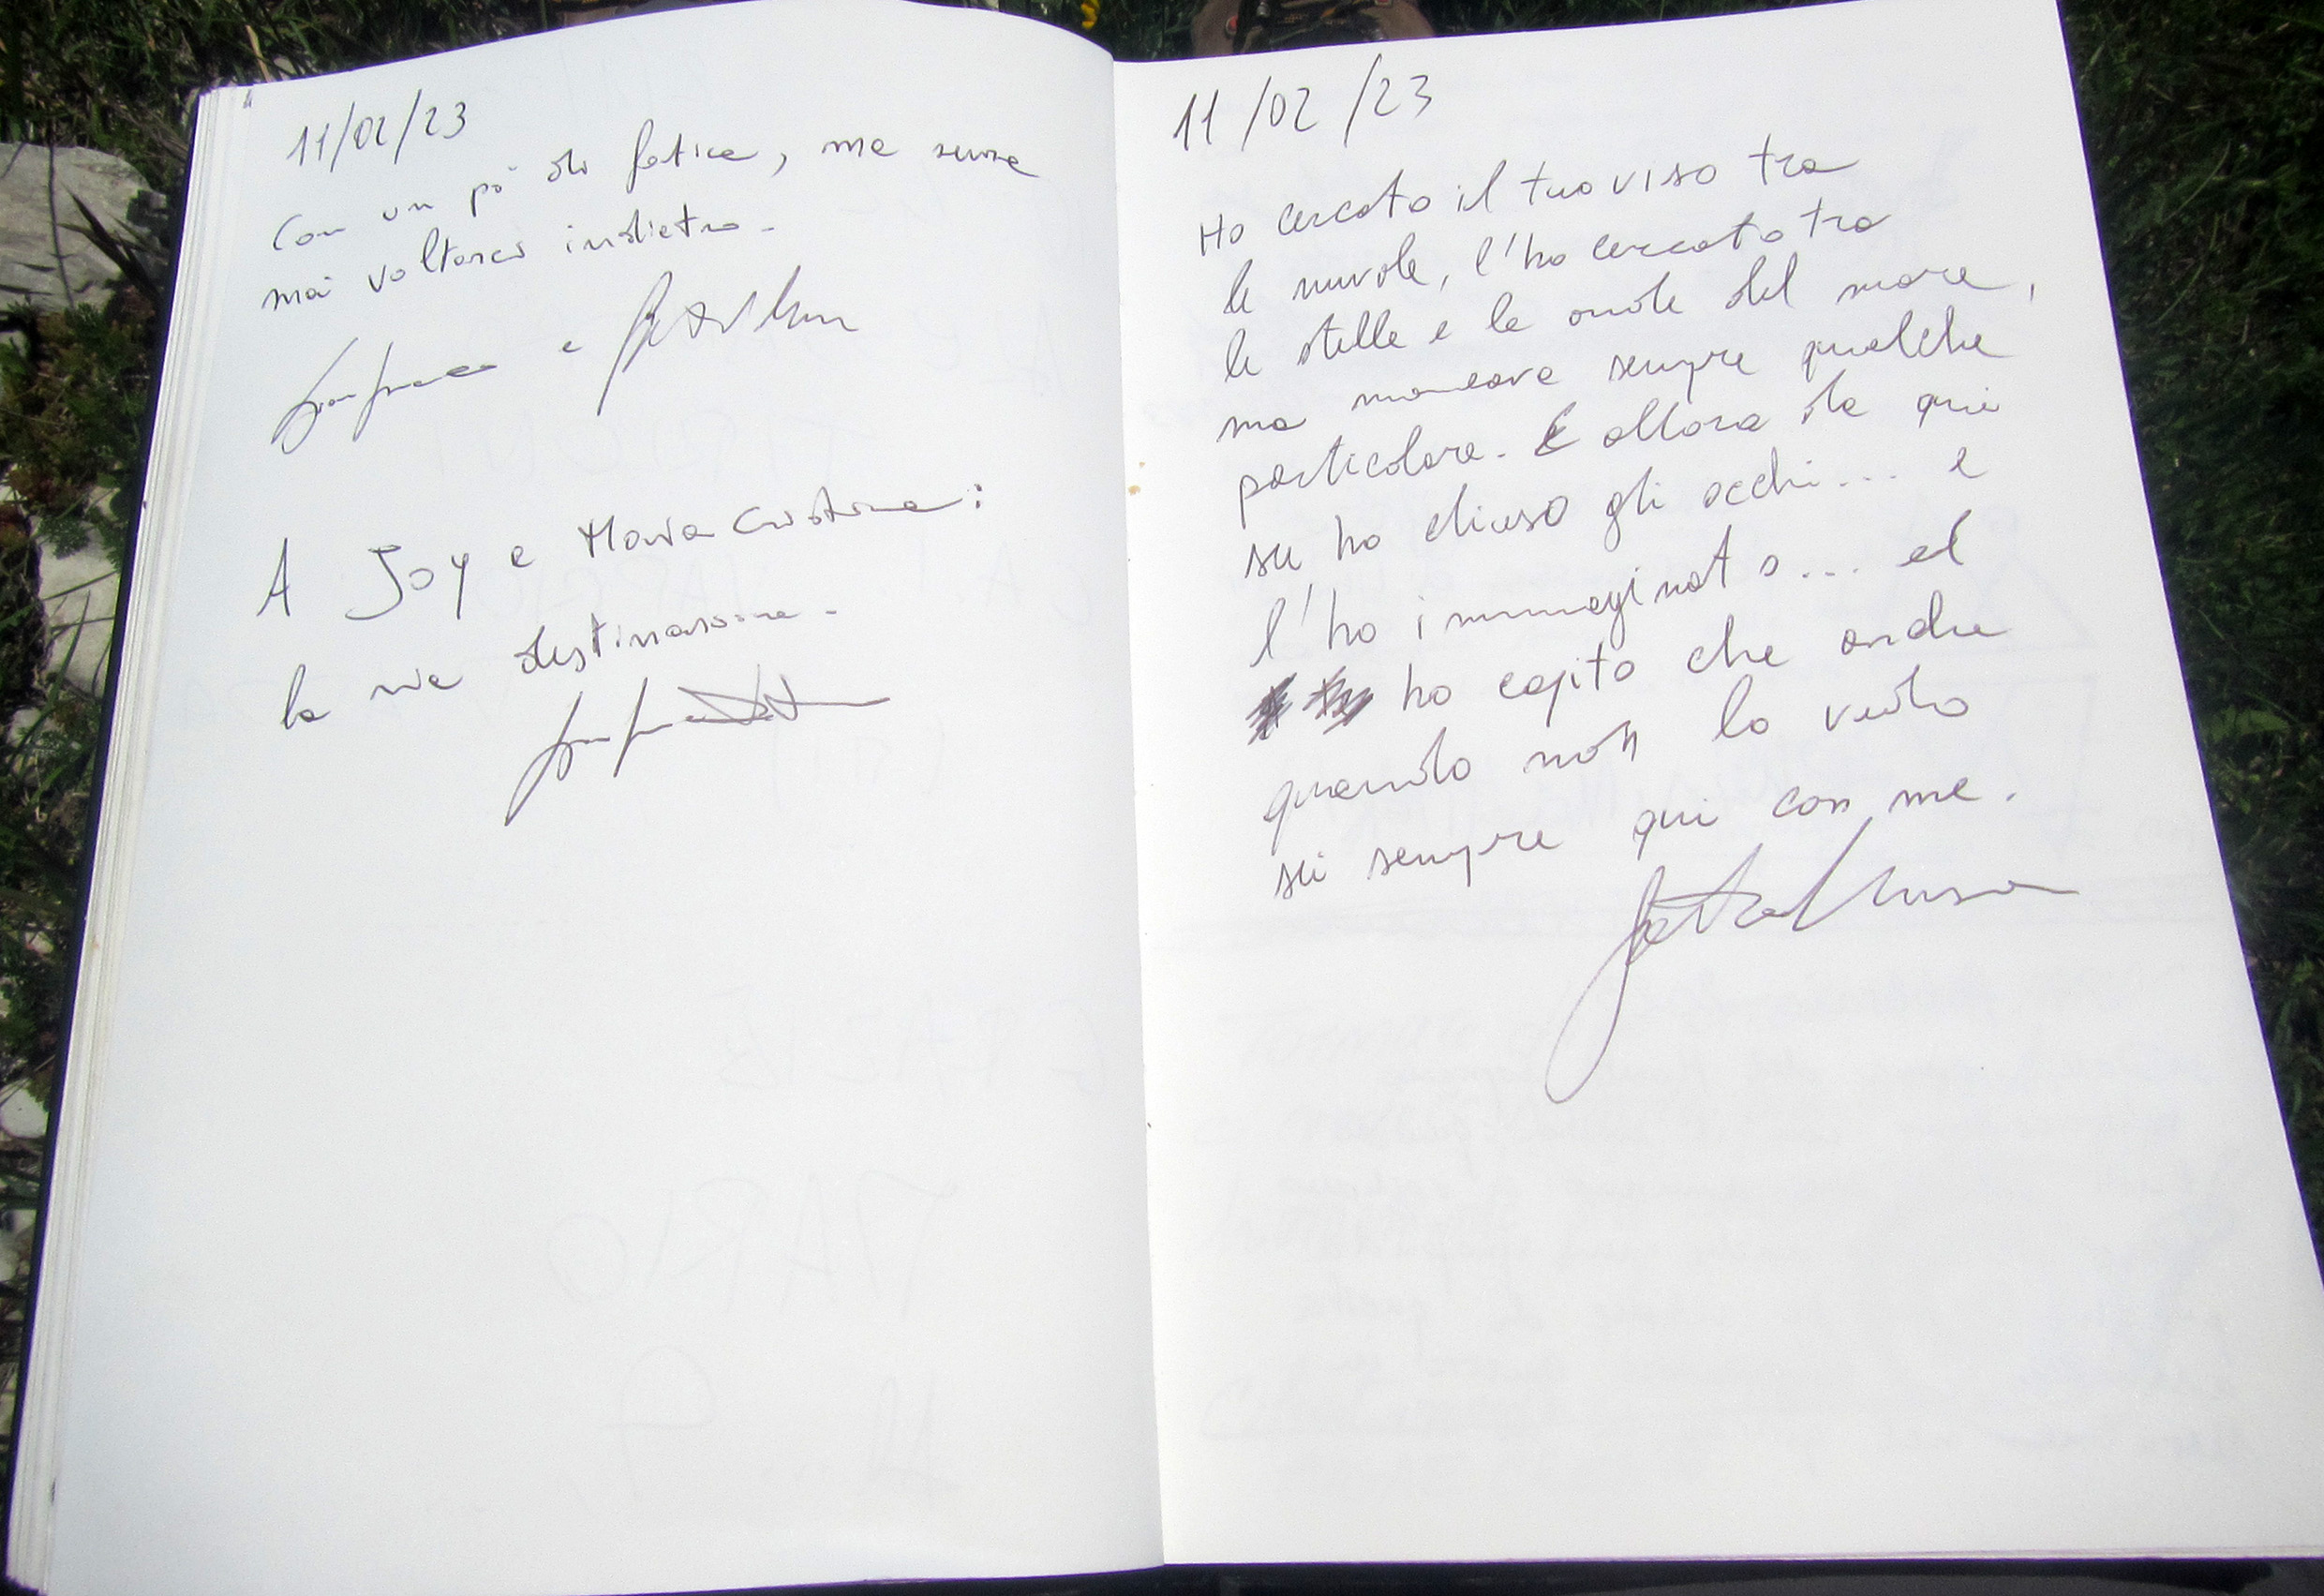 11/02/23
Con un pò di fatica, ma senza
mai voltarci indietro.
Gianfranco e
A Joy e Maria Cristina:
la mia destinazione.
11/02/23
Ho cercato il tuo viso tra
le nuvole, l'ho cercato tra
le stelle e le onde del mare,
ma mancava sempre qualche
particolare. E allora da qui
su ho chiuso gli occhi... e
l'ho immaginato... ed
ho capito che anche
quando non lo vedo
sei sempre qui con me.